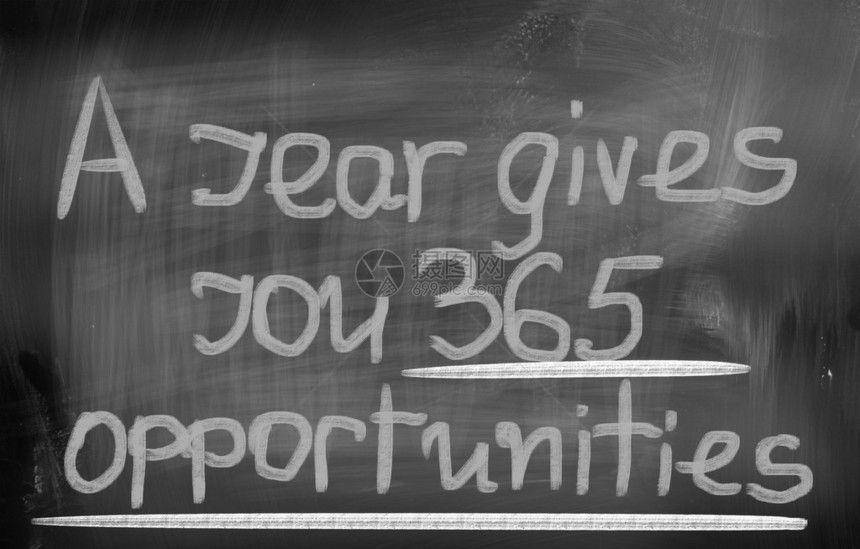 A year gives
you 365
opportunities
摄图网
699pic.com